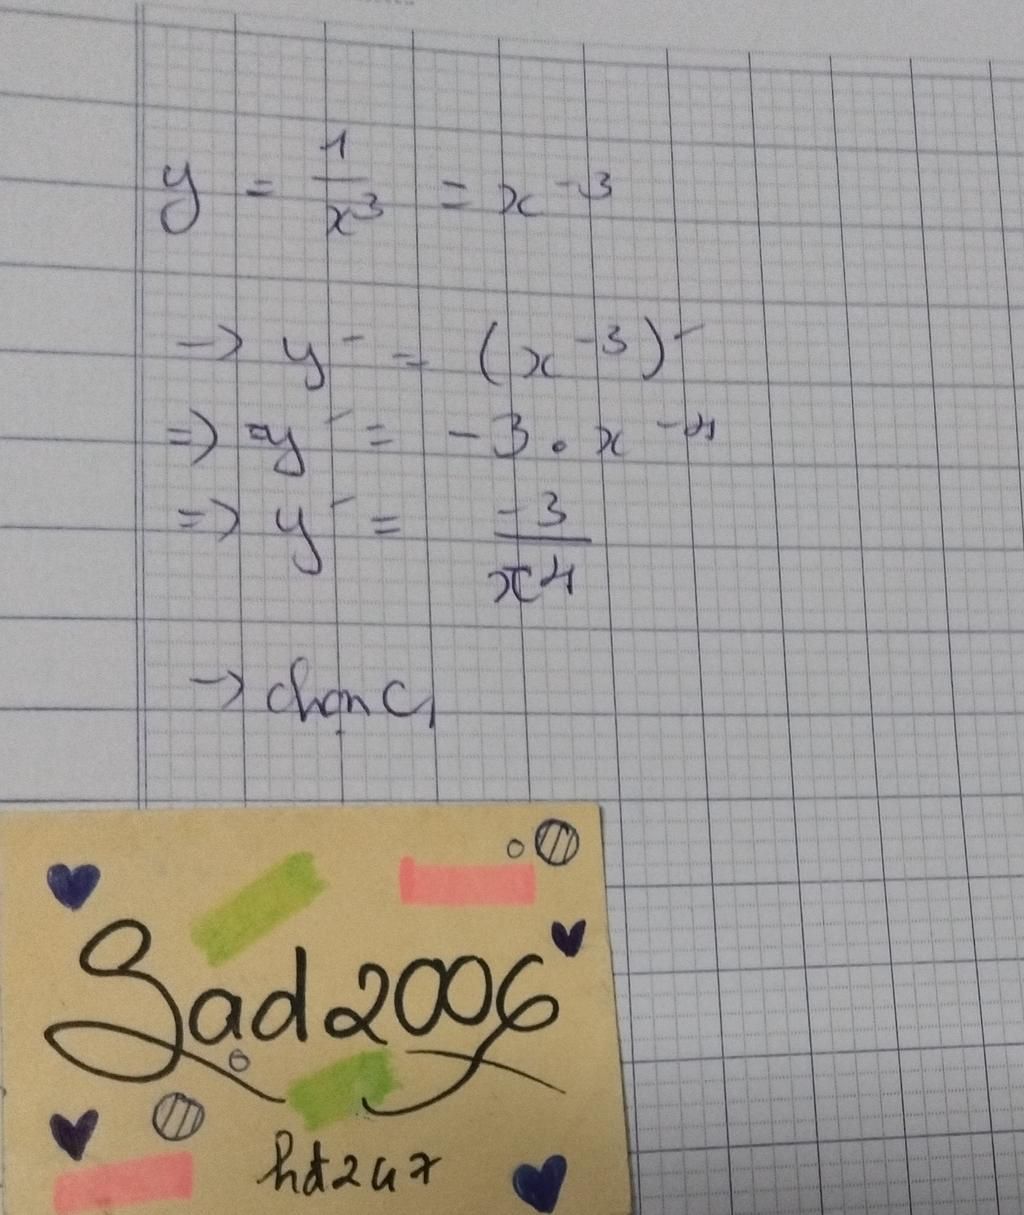 y = 1/x³ = x⁻³
→ y' = (x⁻³)'
⇒ y' = -3 . x⁻⁴
⇒ y' = -3/x⁴
→ chọn C
Sad2006
hd247